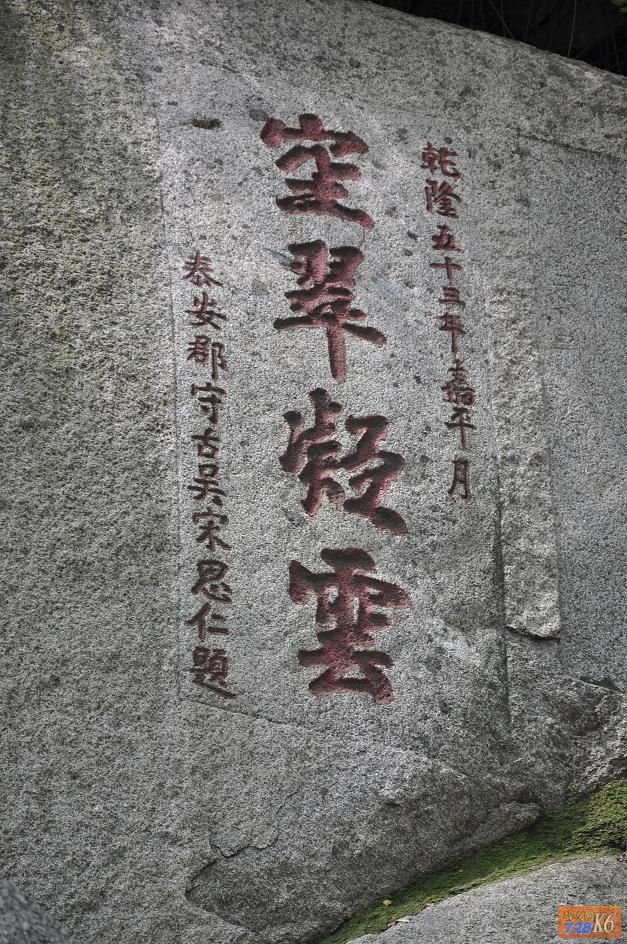 乾隆五十三年嘉平月
空翠凝雲
泰安郡守古吴宋思仁題
728K6